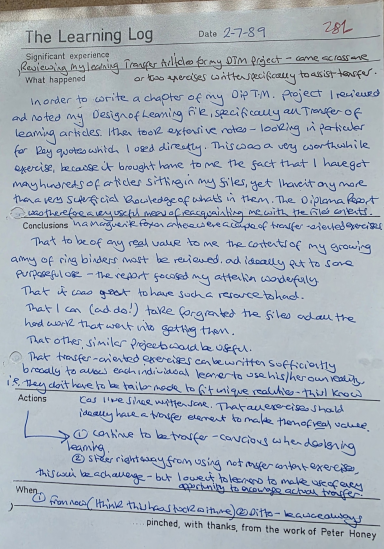 The Learning Log Date 2-7-89 282
Significant experience
Reviewing my learning Transfer Articles for my DTM project - came across one
What happened or two exercises written specifically to assist transfer.
In order to write a chapter of my Dip T.M. Project I reviewed
and noted my Design of Learning File, specifically all Transfer of
Learning articles. I then took extensive notes - looking in particular
for key quotes which I used directly. This was a very worthwhile
exercise, because it brought home to me the fact that I have got
many hundreds of articles sitting in my files, yet I haven't any more
than a very superficial knowledge of what's in them. The Diploma Report
was therefore a very useful means of reacquainting me with the files contents.
Conclusions In a magazine for you an hour were a couple of transfer-oriented exercises
That to be of any real value to me the contents of my growing
army of ring binders must be reviewed, and ideally put to some
purposeful use - the report focused my attention wonderfully.
That it was great to have such a resource to hand.
That I can (and do!) take for granted the files and all the
hard work that went into getting them.
That other, similar projects would be useful.
② That transfer-oriented exercises can be written sufficiently
broadly to allow each individual learner to use his/her own reality,
i.e. they don't have to be tailor made to fit unique realities - this I know
Actions as I've since written some. That all exercises should
ideally have a transfer element to make them of real value.
① Continue to be transfer-conscious when designing
learning.
② Steer right away from using no transfer content exercises,
this will be a challenge - but I owe it to learners to make use of every
opportunity to encourage actual transfer.
When ① from now (I think this has took a time) ② Ditto - be aware always
...pinched, with thanks, from the work of Peter Honey